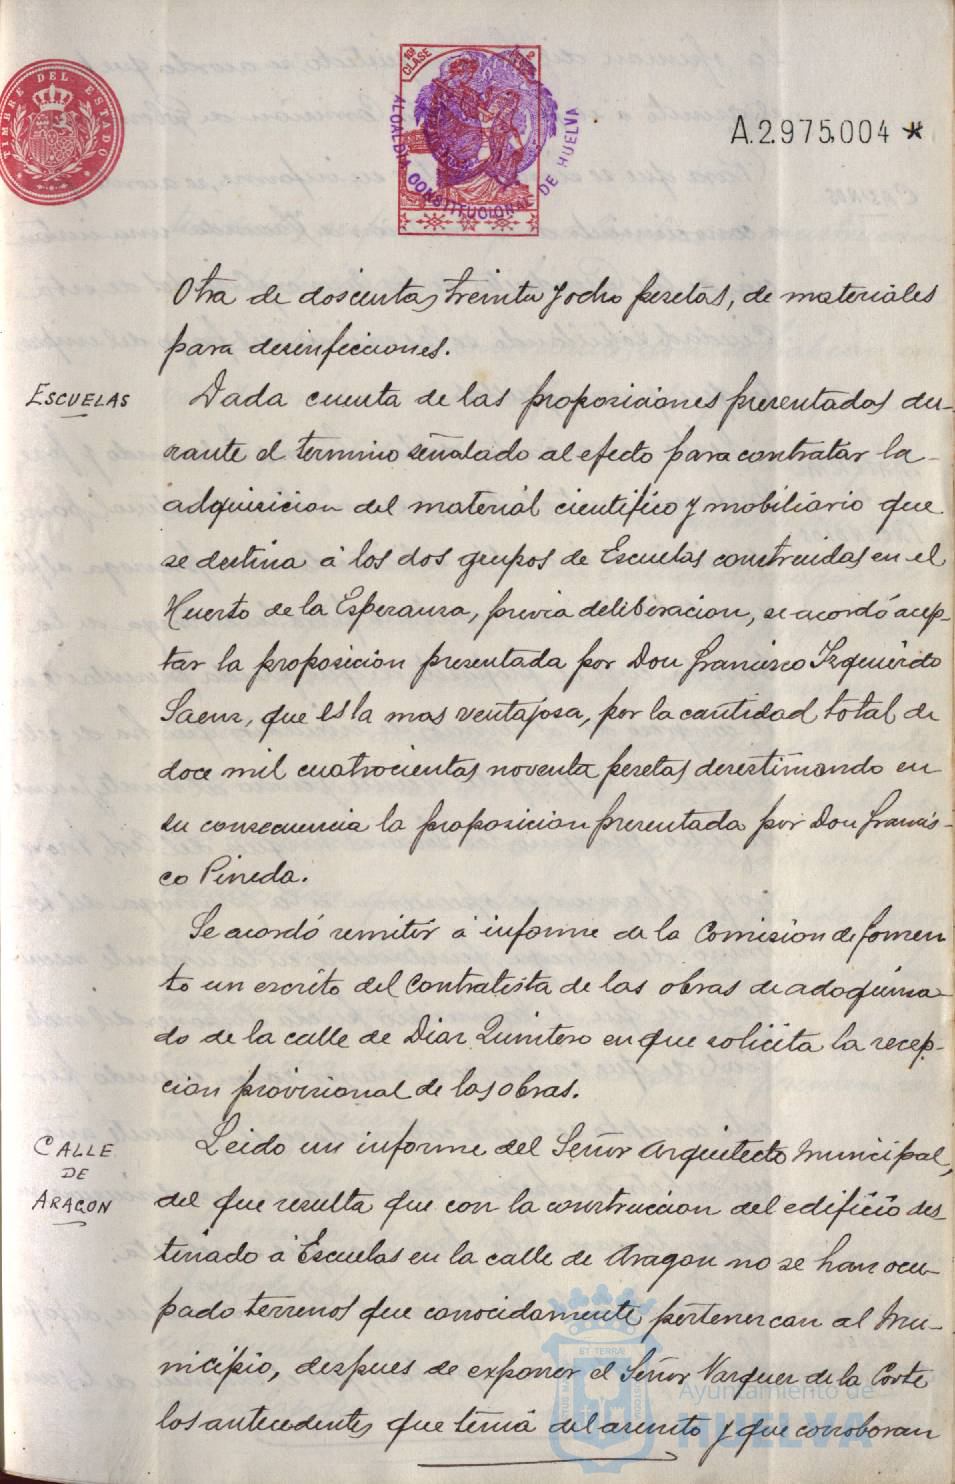 TIMBRE DEL ESTADO
10ª CLASE
ALCALDIA CONSTITUCIONAL DE HUELVA
A.2.975,004 *
Otra de doscientas treinta y ocho pesetas, de materiales
para desinficciones.
ESCUELAS
Dada cuenta de las proposiciones presentadas du-
rante el termino señalado al efecto para contratar la
adquisicion del material cientifico y mobiliario que
se destina á los dos grupos de Escuelas construidas en el
Huerto de la Esperanza, previa deliberacion, se acordó acep-
tar la proposicion presentada por Don Francisco Izquierdo
Saenz, que es la mas ventajosa, por la cantidad total de
doce mil cuatrocientas noventa pesetas desestimando en
su consecuencia la proposicion presentada por Don Francis-
co Pineda.
Se acordó remitir á informe de la Comision de Fomen
to un escrito del Contratista de las obras de adoquina-
do de la calle de Diaz Quintero en que solicita la recep-
cion provisional de las obras.
CALLE
DE
ARAGON
Leido un informe del Señor Arquitecto Municipal,
del que resulta que con la construccion del edificio des-
tinado á Escuelas en la calle de Aragon no se han ocu-
pado terrenos que conocidamente pertenezcan al Mu-
nicipio, despues de exponer el Señor Vazquez de la Corte
los antecedentes que tenia del asunto y que corroboran
ET TERRÆ
Ayuntamiento de
HUELVA